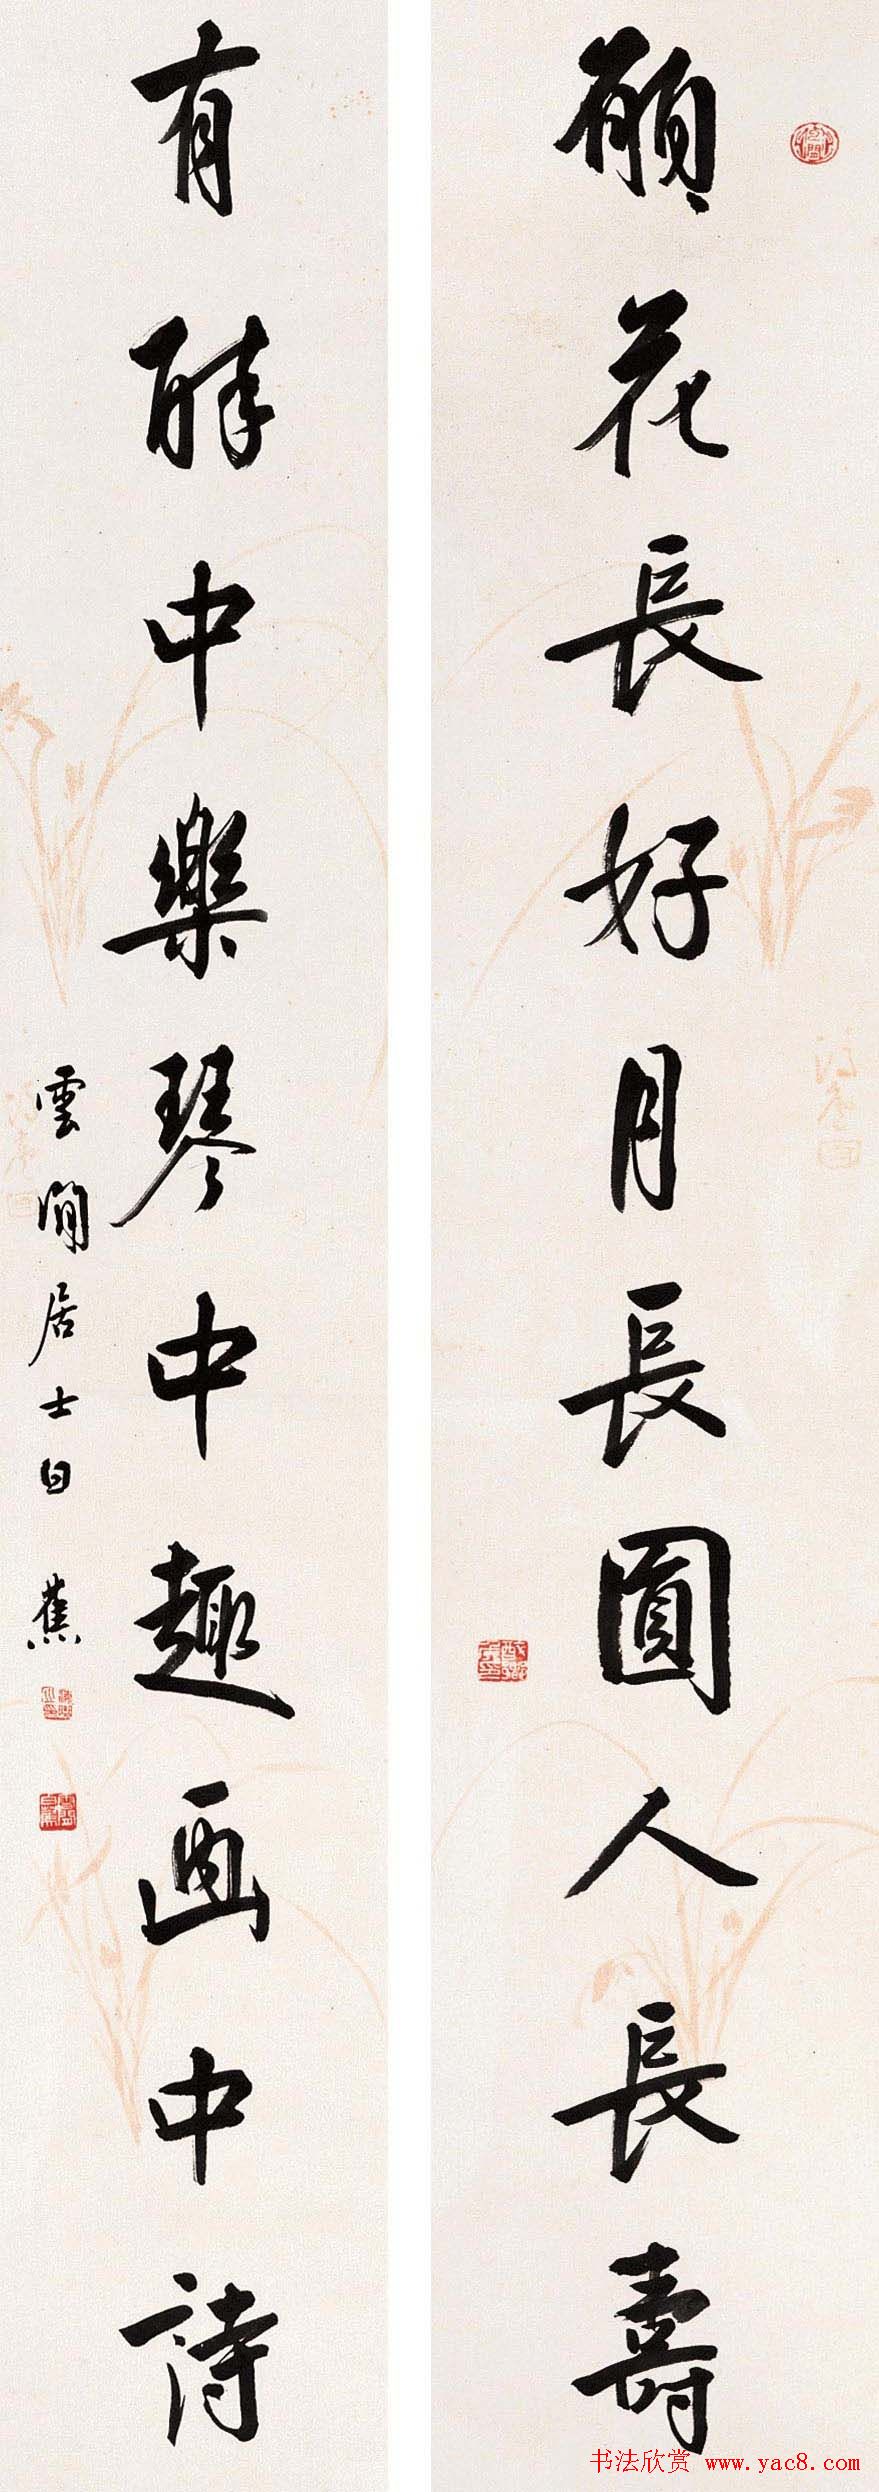 願花長好月長圓人長壽
有醉中樂琴中趣画中詩
雲間居士白蕉
书法欣赏 www.yac8.com